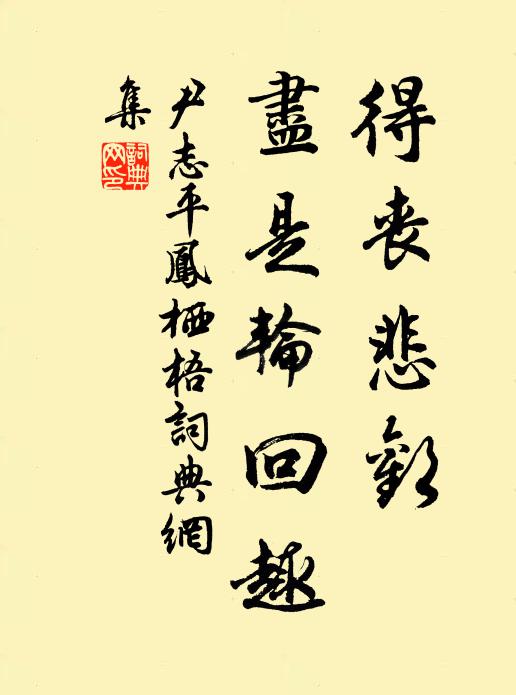 得喪悲歡
盡是輪回趣
尹志平鳳栖梧詞典網
集
詞典網印